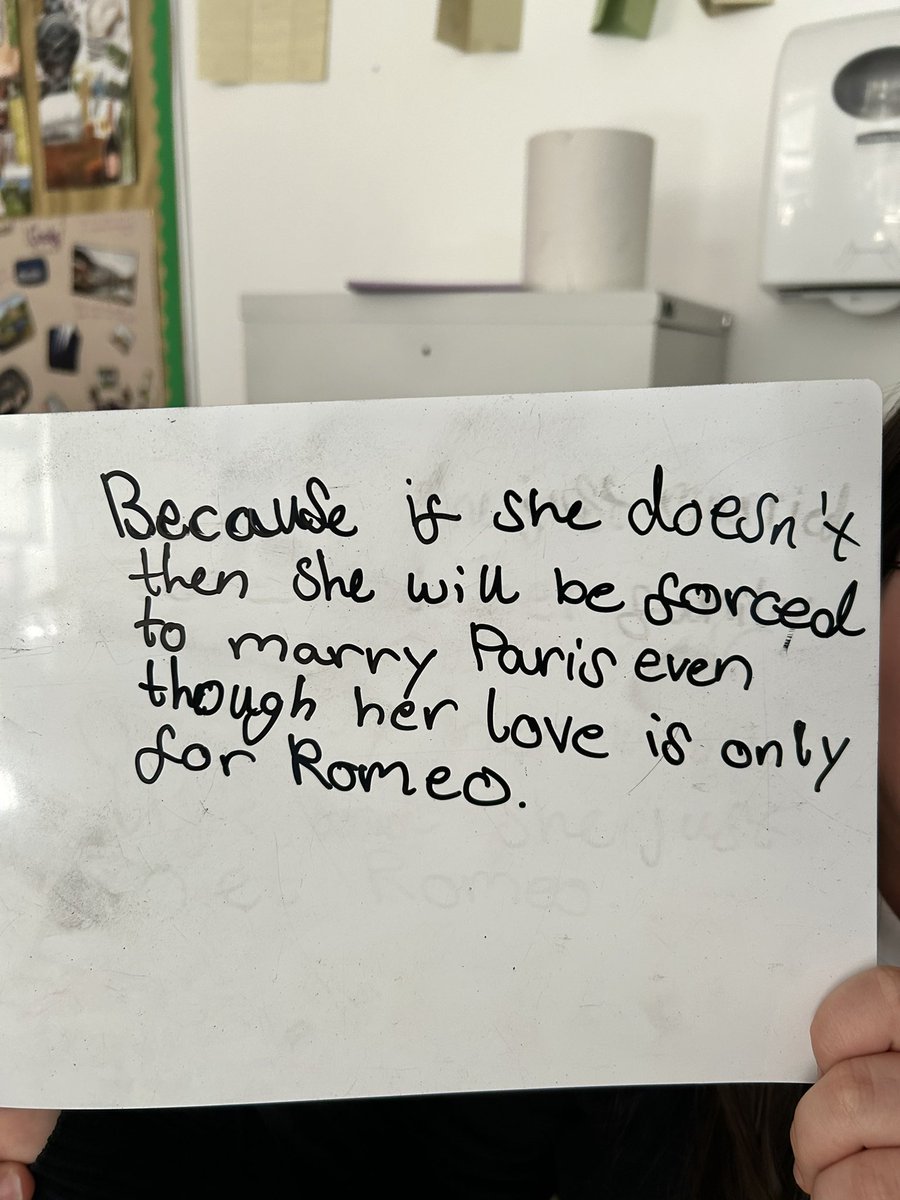 Because if she doesn't
then she will be forced
to marry Paris even
though her love is only
for Romeo.
she just
Romeo